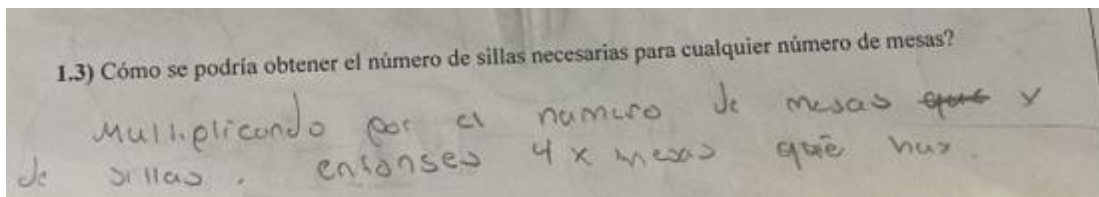 1.3) Cómo se podría obtener el número de sillas necesarias para cualquier número de mesas?
Multiplicando por el numero de mesas que y
de sillas. entonses 4 x mesas que hay.